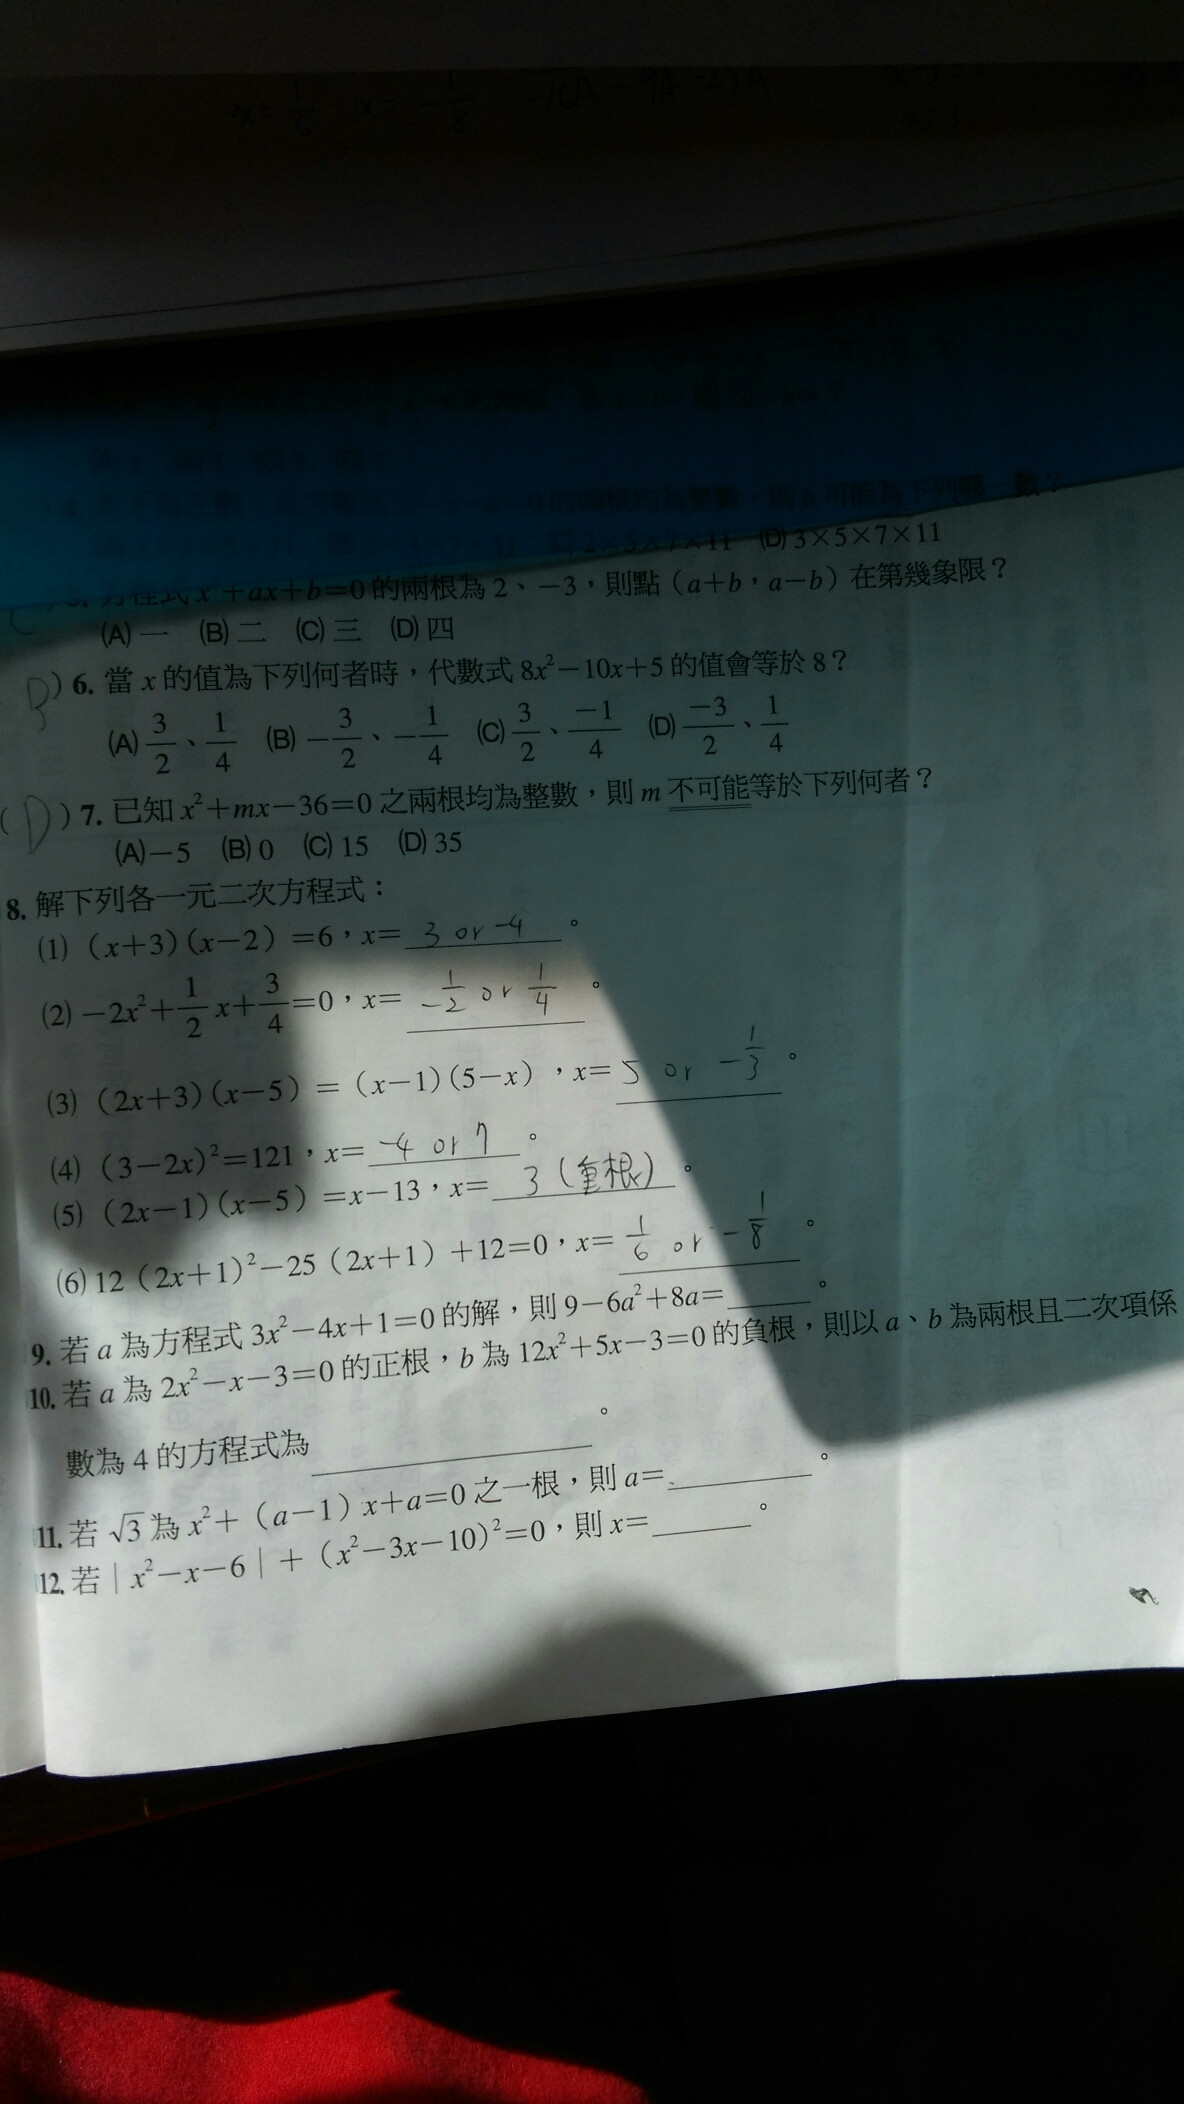 x=1/6 x=-1/8
(D)3×5×7×11
方程式x²+ax+b=0的兩根為2、-3,則點(a+b,a-b)在第幾象限?
(A)一 (B)二 (C)三 (D)四
B)6. 當x的值為下列何者時,代數式8x²-10x+5的值會等於8?
(A)3/2、1/4 (B)-3/2、-1/4 (C)3/2、-1/4 (D)-3/2、1/4
(D)7. 已知x²+mx-36=0之兩根均為整數,則m不可能等於下列何者?
(A)-5 (B)0 (C)15 (D)35
8. 解下列各一元二次方程式:
(1)(x+3)(x-2)=6,x=3 or -4。
(2)-2x²+1/2x+3/4=0,x=1/-2 or 1/4。
(3)(2x+3)(x-5)=(x-1)(5-x),x=5 or -1/3。
(4)(3-2x)²=121,x=-4 or 7。
(5)(2x-1)(x-5)=x-13,x=3(重根)。
(6)12(2x+1)²-25(2x+1)+12=0,x=1/6 or -1/8。
9. 若a為方程式3x²-4x+1=0的解,則9-6a²+8a=____。
10. 若a為2x²-x-3=0的正根,b為12x²+5x-3=0的負根,則以a、b為兩根且二次項係
數為4的方程式為____。
11. 若√3為x²+(a-1)x+a=0之一根,則a=____。
12. 若|x²-x-6|+(x²-3x-10)²=0,則x=____。